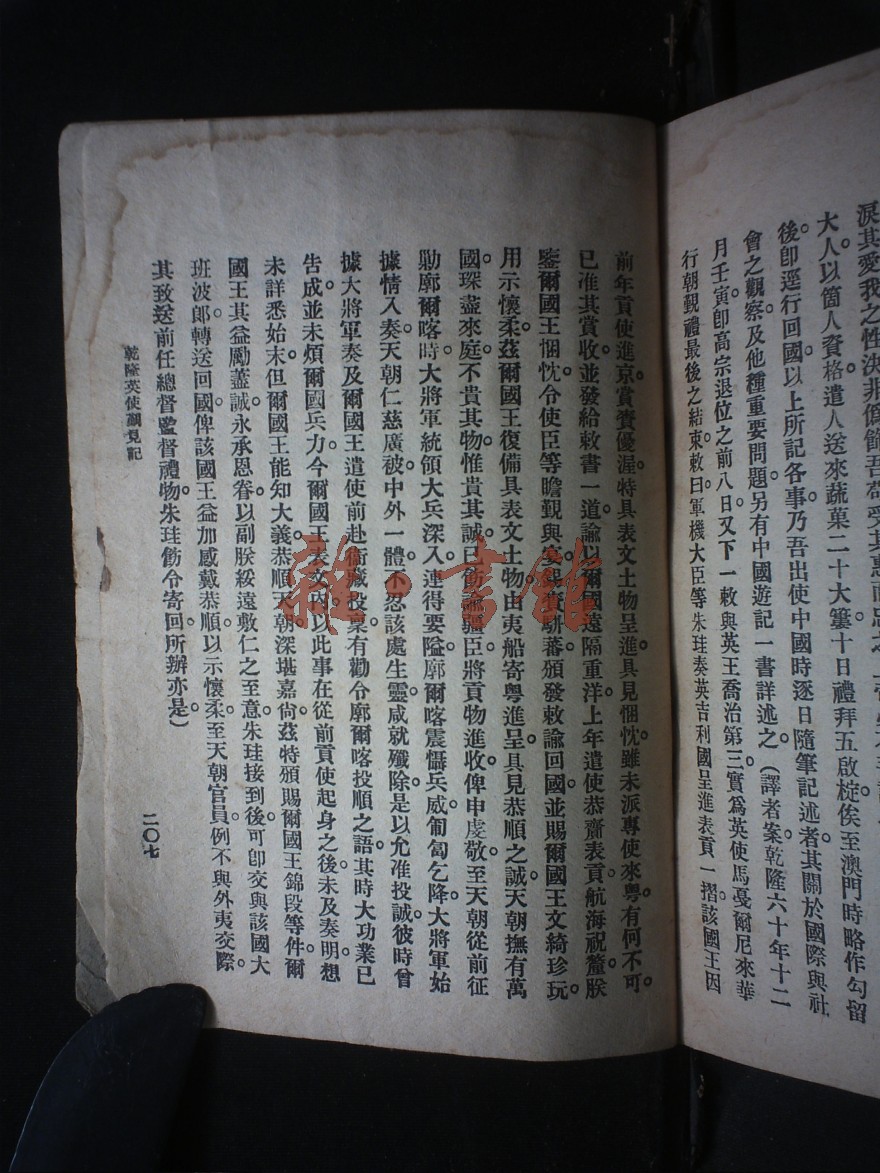 大人以箇人資格遣人送來蔬菓二十大簍十日禮拜五啟椗俟至澳門時略作勾留
後卽逕行回國以上所記各事乃吾出使中國時逐日隨筆記述者其關於國際與社
會之觀察及他種重要問題另有中國遊記一書詳述之(譯者案乾隆六十年十二
月壬寅卽高宗退位之前八日又下一敕與英王喬治第三實爲英使馬戛爾尼來華
行朝覲禮最後之結束敕曰軍機大臣等朱珪奏英吉利國呈進表貢一摺該國王因
前年貢使進京賞賚優渥特具表文土物呈進具見悃忱雖未派專使來粵有何不可
已准其賞收並發給敕書一道諭以爾國遠隔重洋上年遣使恭齎表貢航海祝釐朕
鑒爾國王悃忱令使臣等瞻覲與宴錫賚駢蕃頒發敕諭回國並賜爾國王文綺珍玩
用示懷柔茲爾國王復備具表文土物由夷船寄粵進呈具見恭順之誠天朝撫有萬
國琛盡來庭不貴其物惟貴其誠已飭諭疆臣將貢物進收俾申虔敬至天朝從前征
勦廓爾喀時大將軍統領大兵深入連得要隘廓爾喀震懾兵威匍匐乞降大將軍始
據情入奏天朝仁慈廣被中外一體不忍該處生靈咸就殲除是以允准投誠彼時曾
據大將軍奏及爾國王遣使前赴衞藏投稟有勸令廓爾喀投順之語其時大功業已
告成並未煩爾國兵力今爾國王表文內以此事在從前貢使起身之後未及奏明想
未詳悉始末但爾國王能知大義恭順天朝深堪嘉尙茲特頒賜爾國王錦段等件爾
國王其益勵藎誠永承恩眷以副朕綏遠敷仁之至意朱珪接到後可卽交與該國大
班波郞轉送回國俾該國王益加感戴恭順以示懷柔至天朝官員例不與外夷交際
其致送前任總督監督禮物朱珪飭令寄回所辦亦是)
乾隆英使覲見記
二〇七
雜·書館